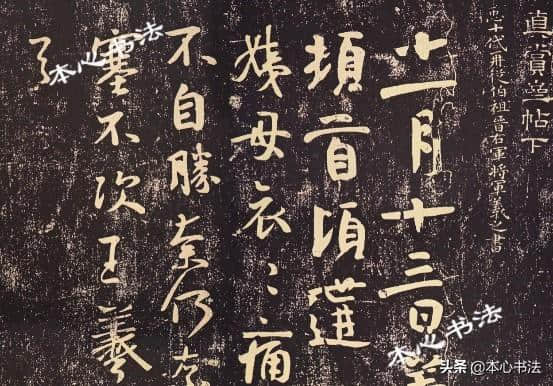 真賞齋帖下
臣十代再從伯祖晉右軍將軍羲之書
十一月十三日羲
頓首頃遘
姨母哀〻痛
不自勝奈何奈
塞不次王羲
本心书法
本心书法
头条 @本心书法